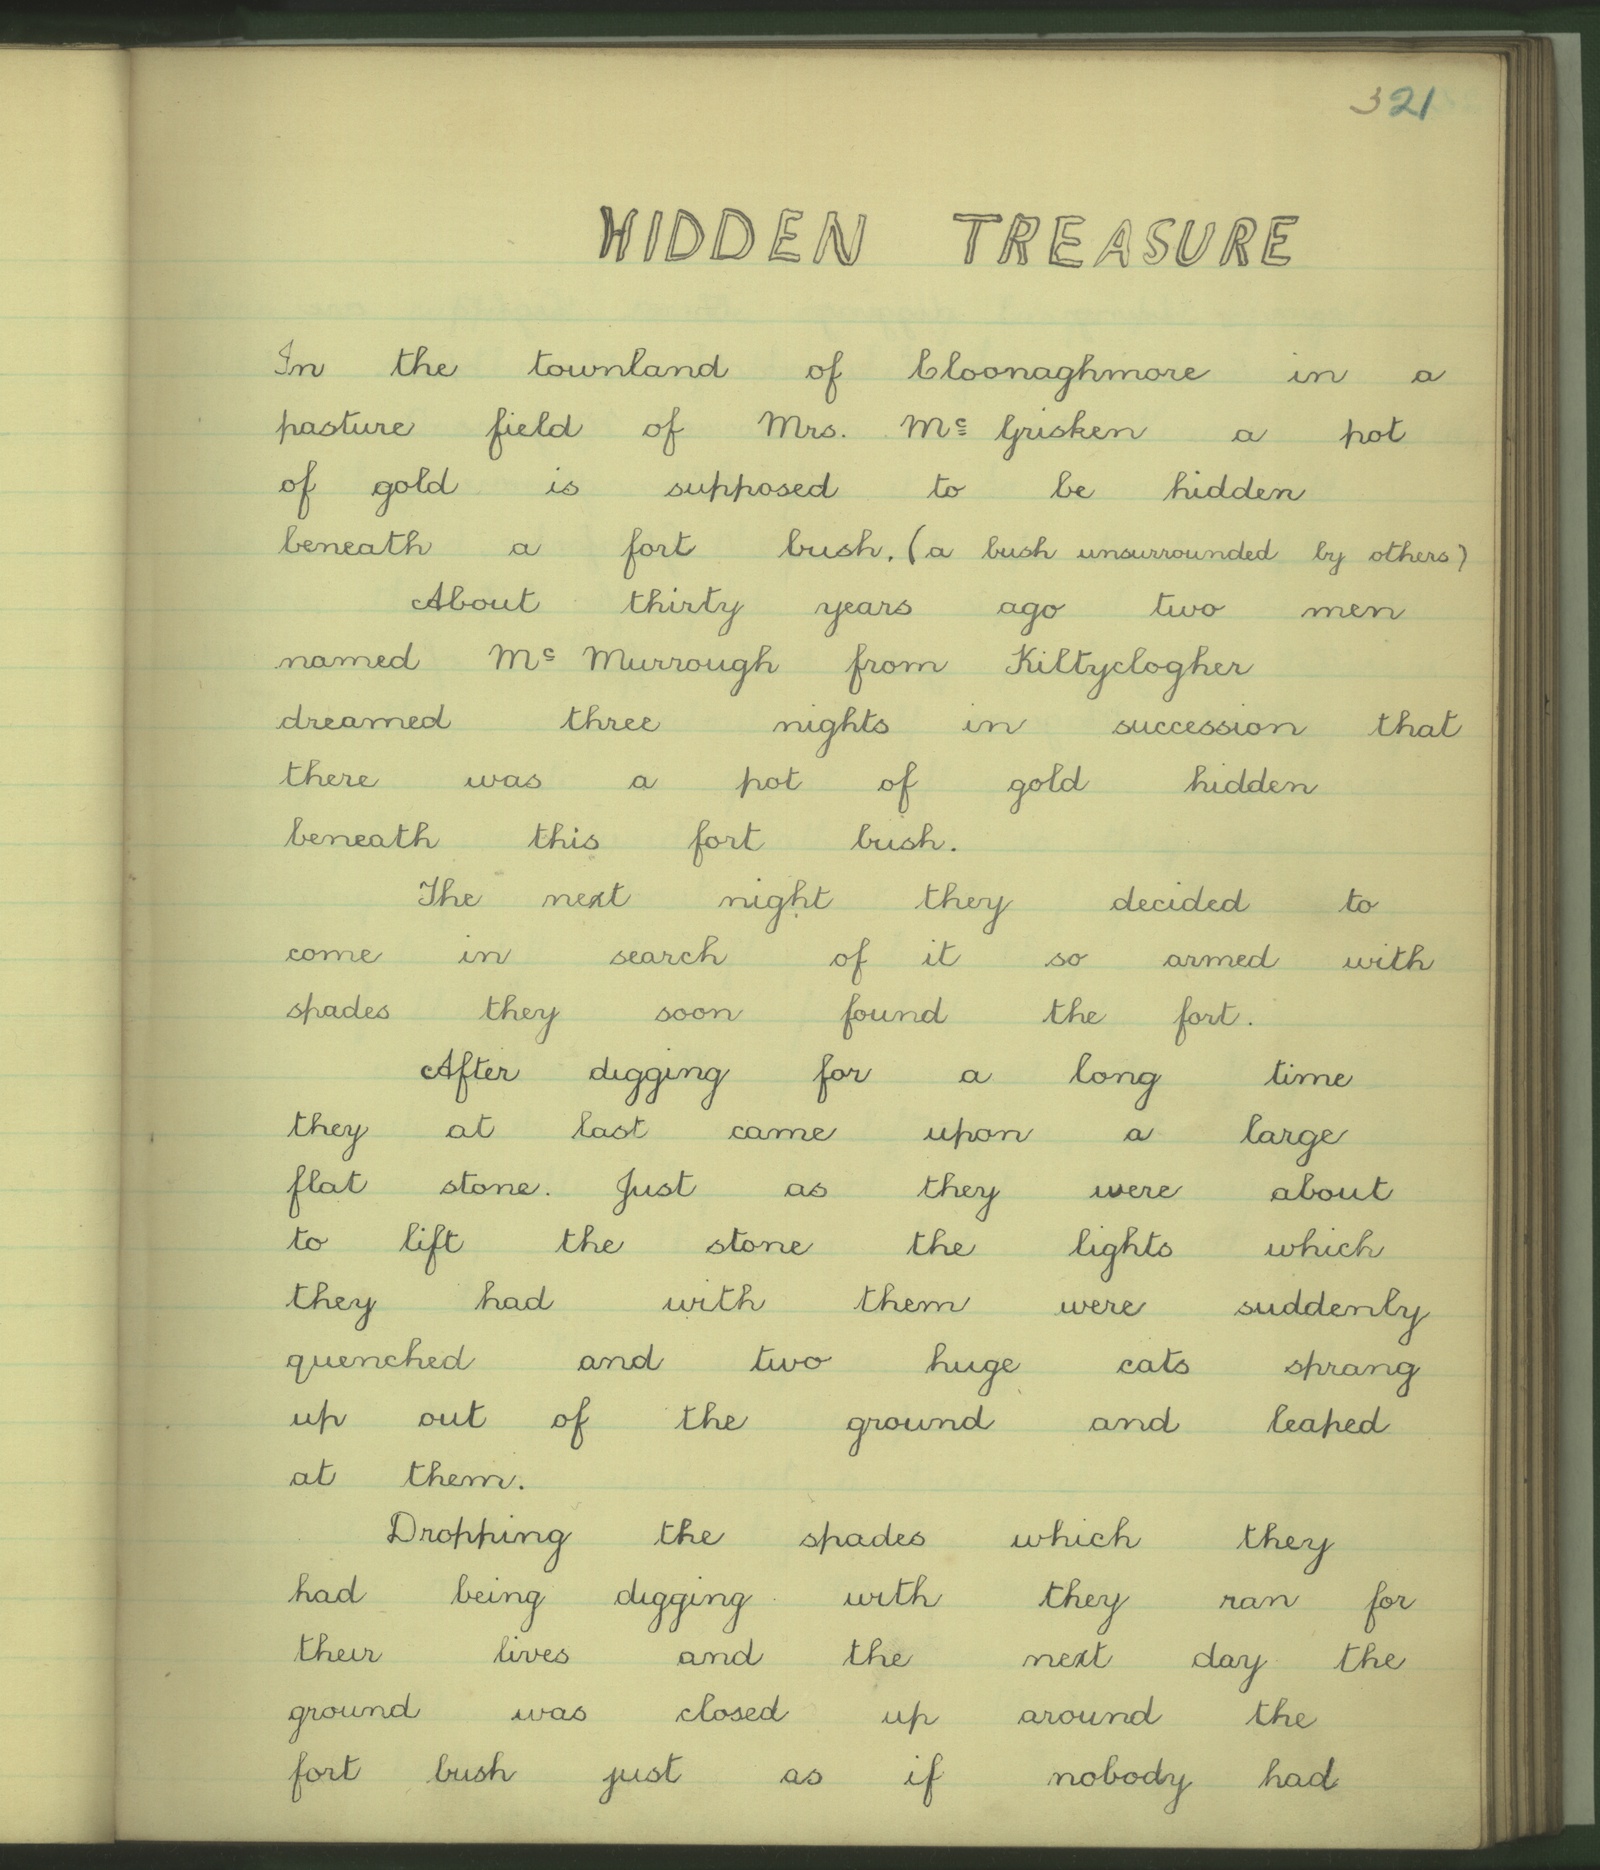 321
HIDDEN TREASURE
In the townland of Cloonaghmore in a
pasture field of Mrs. Mc Grisken a pot
of gold is supposed to be hidden
beneath a fort bush. (a bush unsurrounded by others)
About thirty years ago two men
named Mc Murrough from Kiltyclogher
dreamed three nights in succession that
there was a pot of gold hidden
beneath this fort bush.
The next night they decided to
come in search of it so armed with
spades they soon found the fort.
After digging for a long time
they at last came upon a large
flat stone. Just as they were about
to lift the stone the lights which
they had with them were suddenly
quenched and two huge cats sprang
up out of the ground and leaped
at them.
Dropping the spades which they
had being digging with they ran for
their lives and the next day the
ground was closed up around the
fort bush just as if nobody had